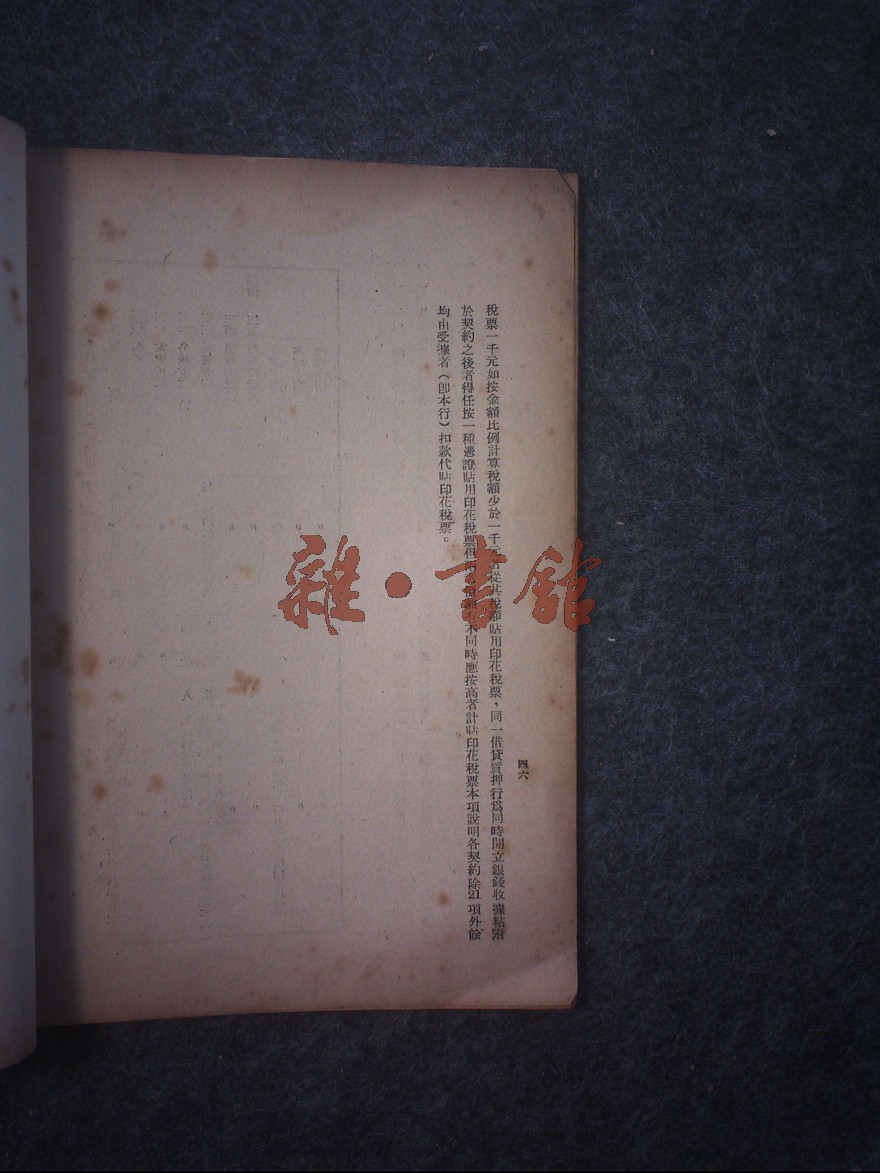 稅票一千元如按金額比例計算稅額少於一千元者從其稅額貼用印花稅票，同一借貸質押行爲同時開立銀錢收據粘附
於契約之後者得任按一種憑證貼用印花稅票但不同時應按高者計貼印花稅票本項說明各契約除21項外餘
均由受據者（卽本行）扣款代貼印花稅票。
四六
雜·書館